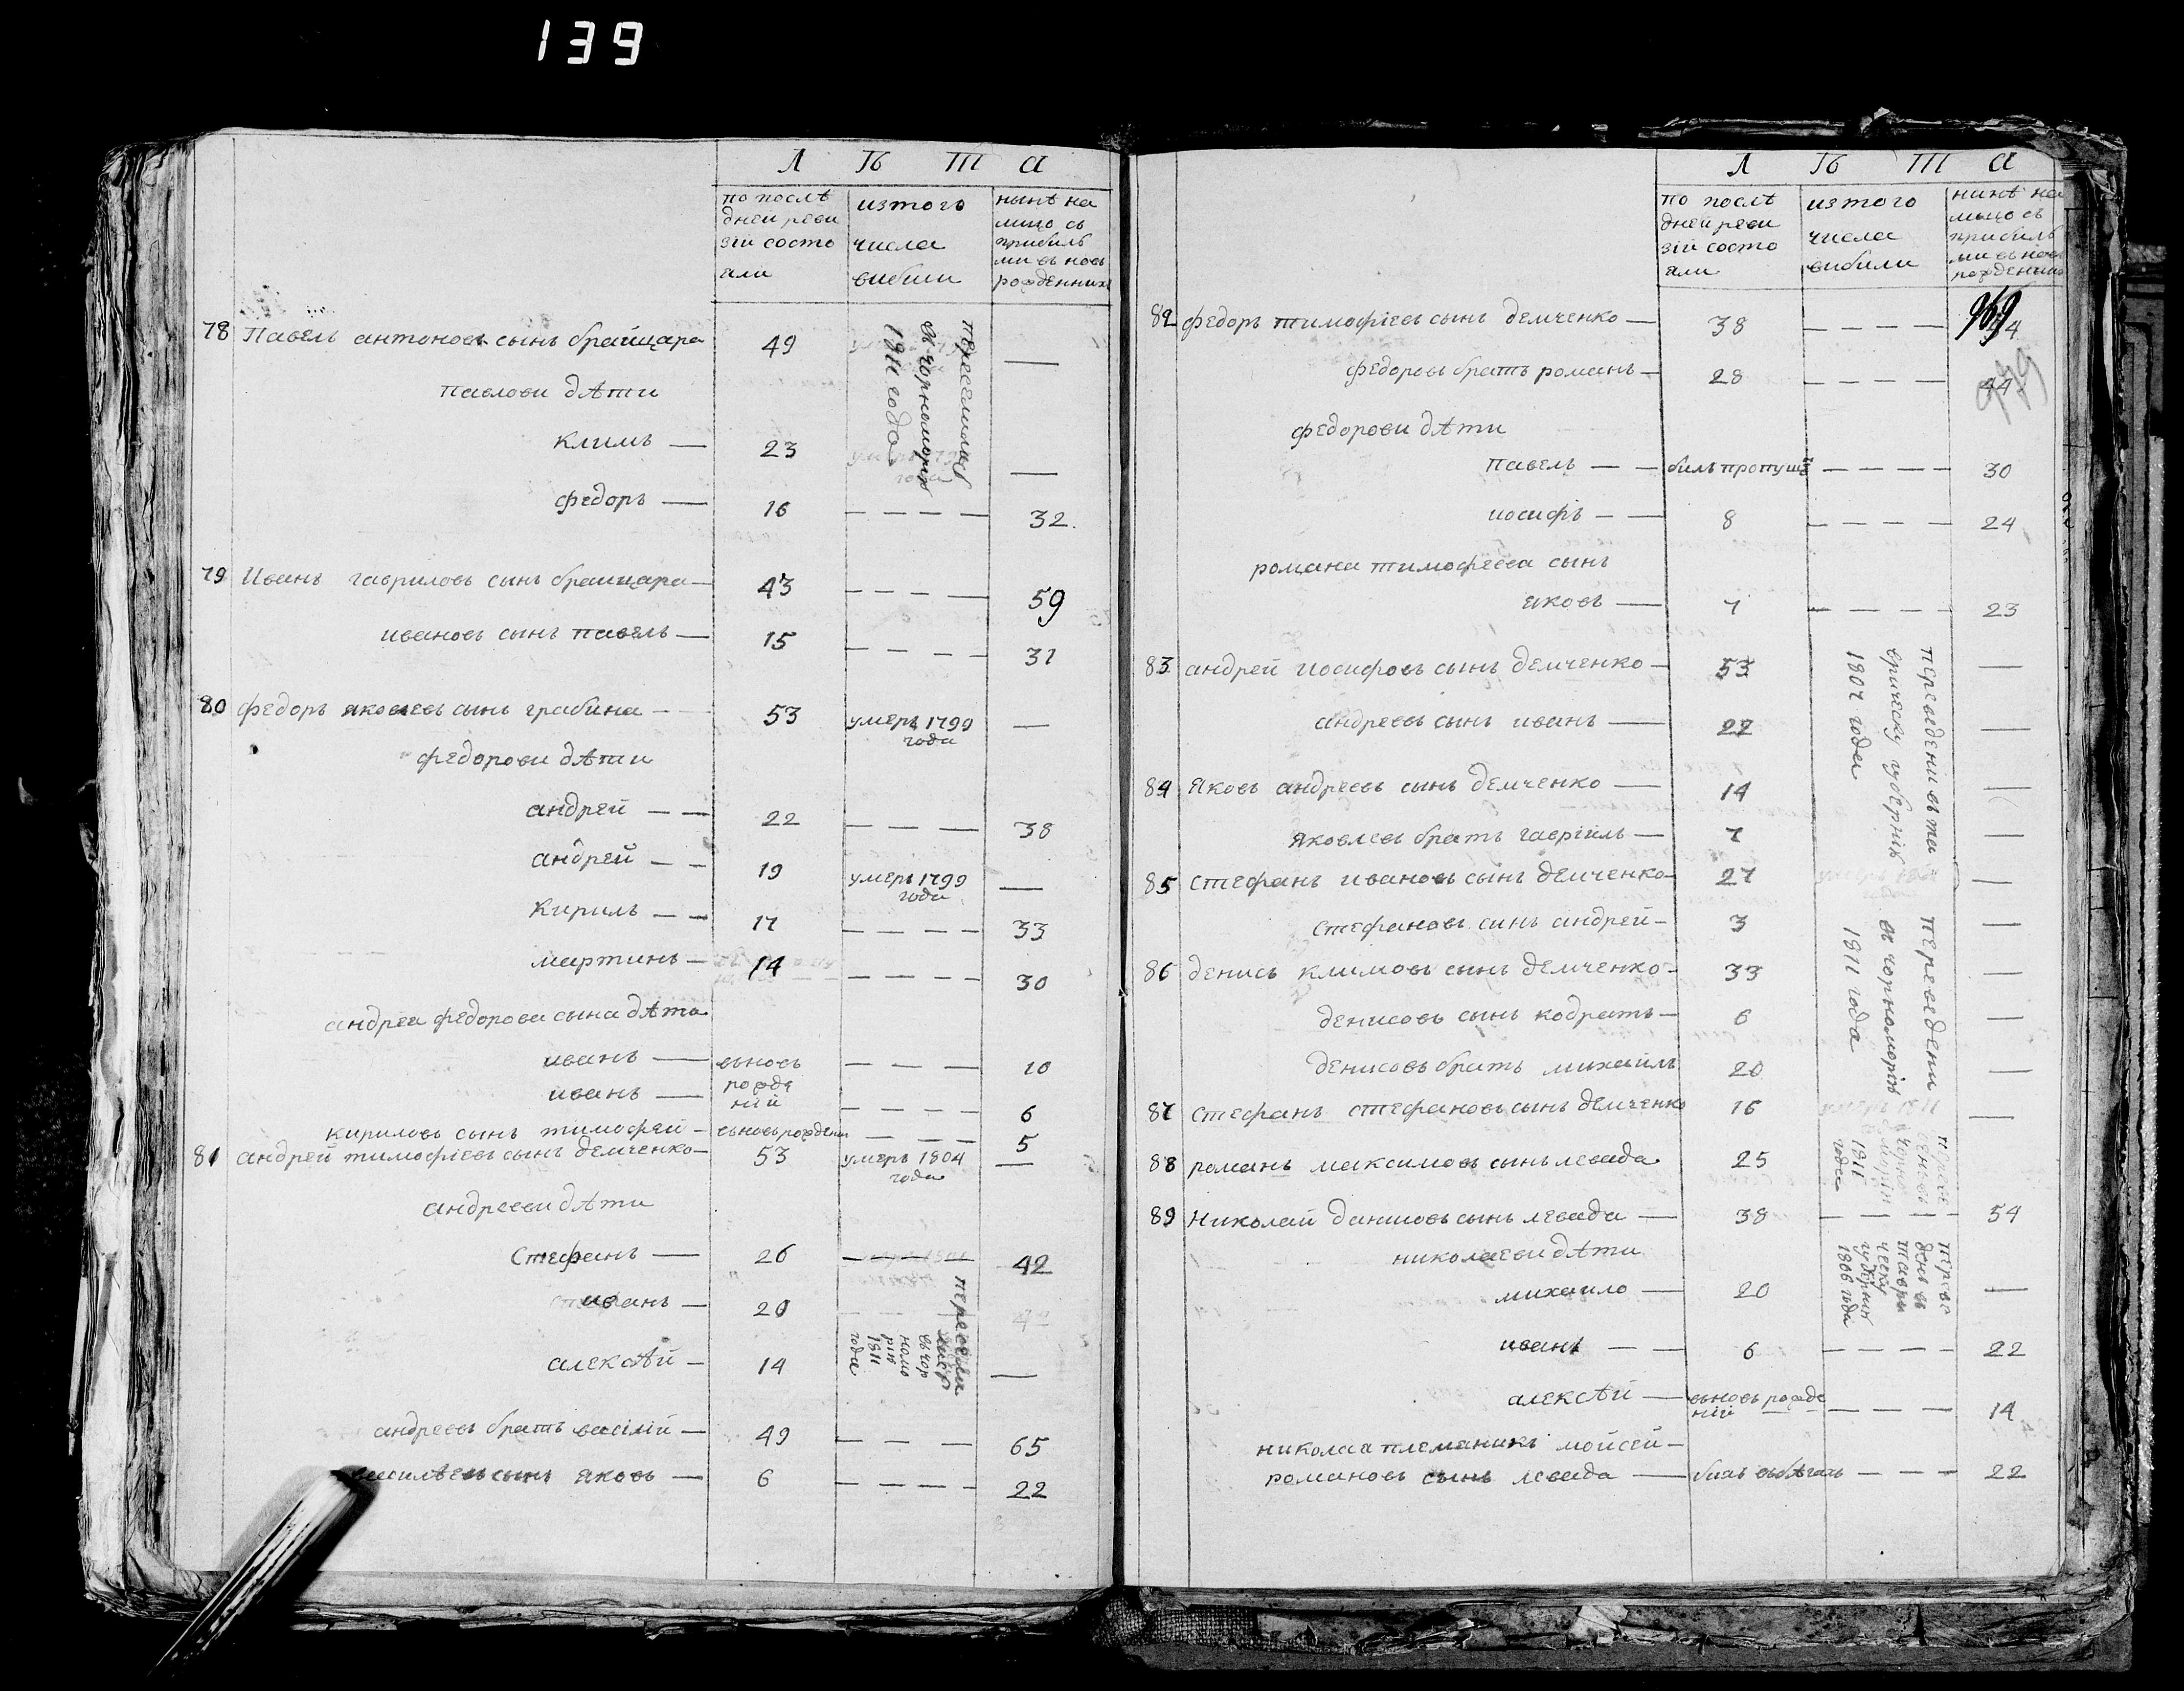 139
Л Ѣ Т А
по послѣ
дней реви
зіи состо
яли
изтого
числа
вибили
нынѣ на
лицо съ
прибил
ми вновь
рожденних
78 Павелъ антоновъ сынъ брайцара — 49 —
переселился
въ чорноморію
1811 года
павлови дѣти
климъ — 23 —
федоръ — 16 — — — — 32
79 Иванъ гавриловъ сынъ браицара — 43 — — — — 59
ивановъ сынъ павелъ — 15 — — — — 31
80 федоръ яковлевъ сынъ грабина — 53 умеръ 1799 —
года
федорови дѣти
андрей — — 22 — — — 38
андрей — — 19 умеръ 1799 —
года
Кирилъ — — 17 — — — — 33
мартинъ — 14 — — — — 30
андрея федорова сына дѣти
иванъ — вьновь — — — 10
рожде
ній
иванъ — — — — — 6
кириловъ сынъ тимофей — вьновьрожден — — — 5
81 андрей тимофіевъ сынъ демченко — 53 умеръ 1804 —
года
андрееви дѣти
Стефанъ — 26 — 42
иванъ — 20
пересели
лис
вьчор
номо
рию
1811
года
алексѣй — 14 —
андреевъ братъ василій — 49 — — — 65
василѣевъ сынъ яковъ — 6 — — — — 22
Л Ѣ Т А
по послѣ
дней реви
зіи состо
яли
изтого
числа
вибили
нинѣ на
лицо съ
прибил
ми вьновь
рожденими
82 федоръ тимофіевъ сынъ демченко — 38 — — — —
969
федоровъ братъ романъ — 28 — — — — 44
979
федорови дѣти
павелъ — — билъ пропущ — — — — 30
иосифъ — — 8 — — — — 24
романа тимофеева сынъ
яковъ — 7 — — — — 23
83 андрей иосифовъ сынъ демченко — 53 —
переведени вьта
врическу губернію
1802 года
андреевъ сынъ иванъ — 22 —
84 Яковъ андреевъ сынъ демченко — 14 —
яковлевъ братъ гавріилъ — 7 —
85 стефанъ ивановъ сынъ демченко — 27 —
стефановъ синъ андрей — 3 —
переведени
въ чорноморію
1811 года
86 денисъ климовъ сынъ демченко — 33 —
денисовъ сынъ кодратъ — 6 —
денисовъ братъ михаилъ 20 —
87 стефанъ стефановъ сынъ демченко 16 —
88 романъ максимовъ сынъ левада 25
1811
года
89 Николай даниловъ сынъ левада — 38 — — — — 54
николаеви дѣти
михаило — 20 —
переве
денъ въ
тавры
ческу
губернию
1806 года
иванъ — — 6 — — — — 22
алексѣй — вьновь рожде — — — — 14
ній
николая племяникъ мойсей —
романовъ сынъ левада — билъ вьбѣгахъ — — — 22